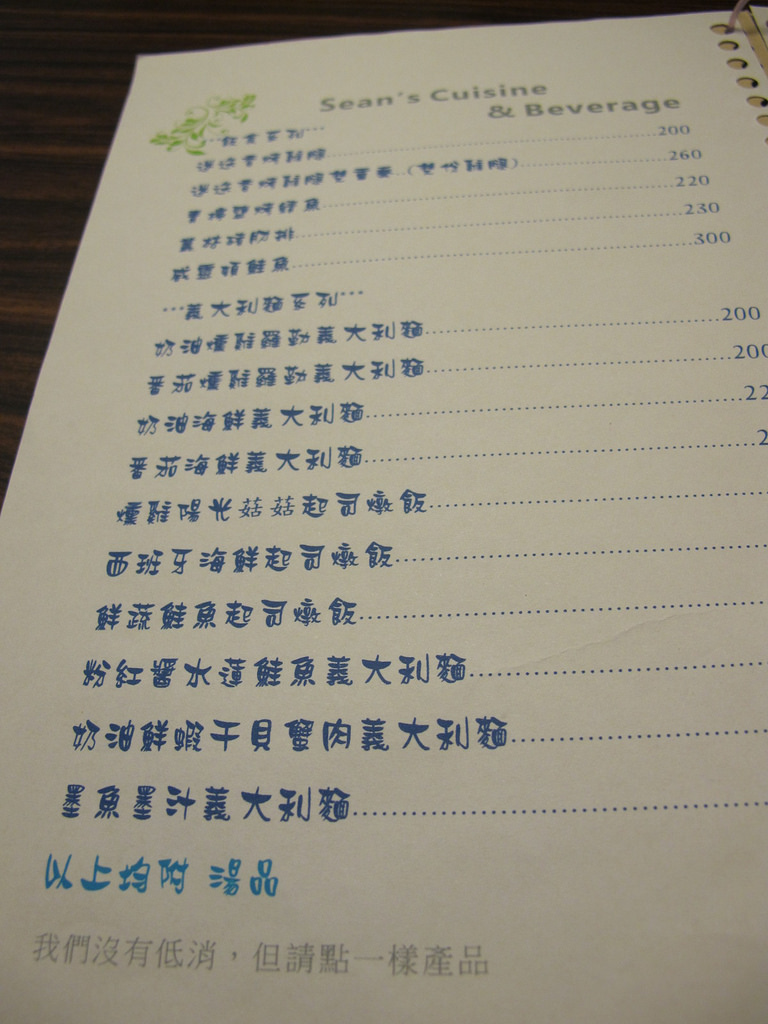 Sean's Cuisine
& Beverage
···飯食系列···
迷迭香烤雞腿......200
迷迭香烤雞腿雙享要..(雙份雞腿)......260
鹽烤鱈魚......220
肋排......230
威靈頓鮭魚......300
···義大利麵系列···
奶油燻雞羅勒義大利麵......200
番茄燻雞羅勒義大利麵......200
奶油海鮮義大利麵......22
番茄海鮮義大利麵......2
燻雞陽光菇菇起司燉飯......
西班牙海鮮起司燉飯......
鮮蔬鮭魚起司燉飯......
粉紅醬水蓮鮭魚義大利麵......
奶油鮮蝦干貝蟹肉義大利麵......
墨魚墨汁義大利麵......
以上均附 湯品
我們沒有低消，但請點一樣產品